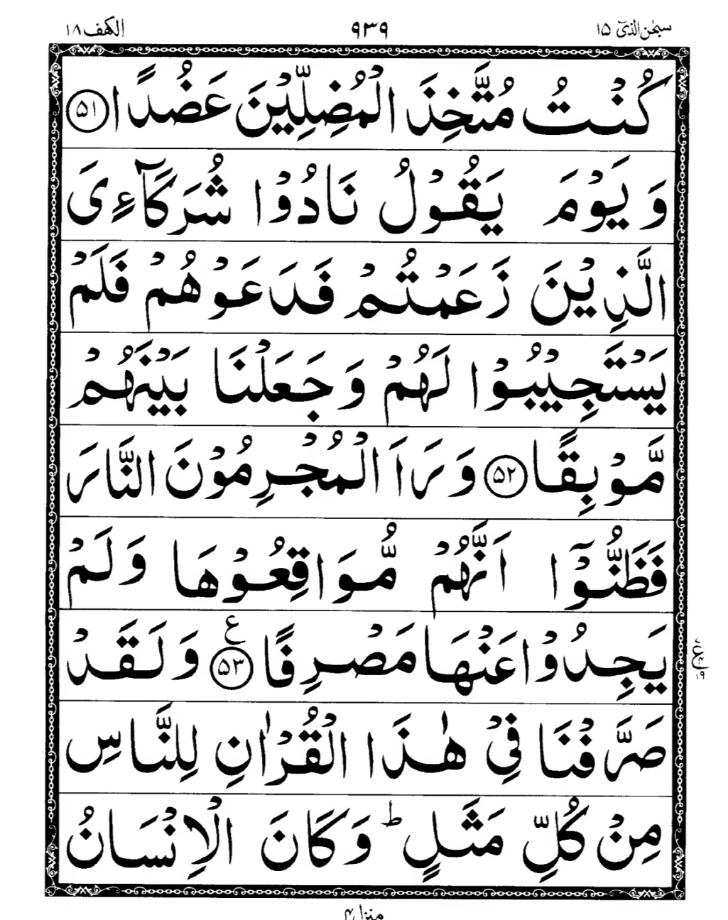 سبحٰن الذیٓ ۱۵ ۹۳۹ الکھف ۱۸
کُنْتُ مُتَّخِذَ الْمُضِلِّیْنَ عَضُدًا ۵۱
وَیَوْمَ یَقُوْلُ نَادُوْا شُرَکَآءِیَ
الَّذِیْنَ زَعَمْتُمْ فَدَعَوْهُمْ فَلَمْ
یَسْتَجِیْبُوْا لَهُمْ وَجَعَلْنَا بَیْنَهُمْ
مَّوْبِقًا ۵۲ وَرَاَ الْمُجْرِمُوْنَ النَّارَ
فَظَنُّوْۤا اَنَّهُمْ مُّوَاقِعُوْهَا وَلَمْ
یَجِدُوْا عَنْهَا مَصْرِفًا ۵۳ ع وَلَقَدْ
صَرَّفْنَا فِیْ هٰذَا الْقُرْاٰنِ لِلنَّاسِ
مِنْ کُلِّ مَثَلٍ ؕ وَکَانَ الْاِنْسَانُ
منزل ۴